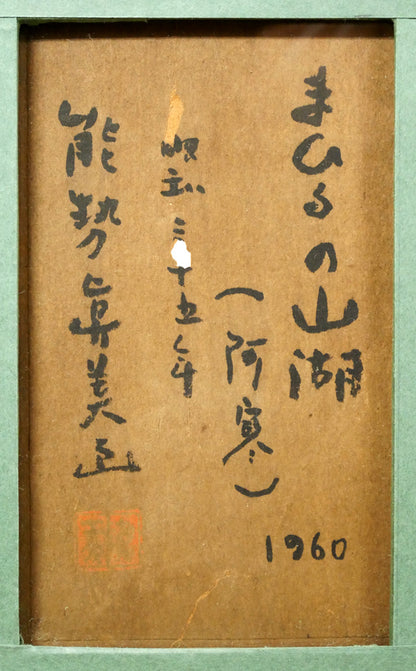 まひるの山湖
(阿寒)
1960
昭和三十五年
能勢眞美画